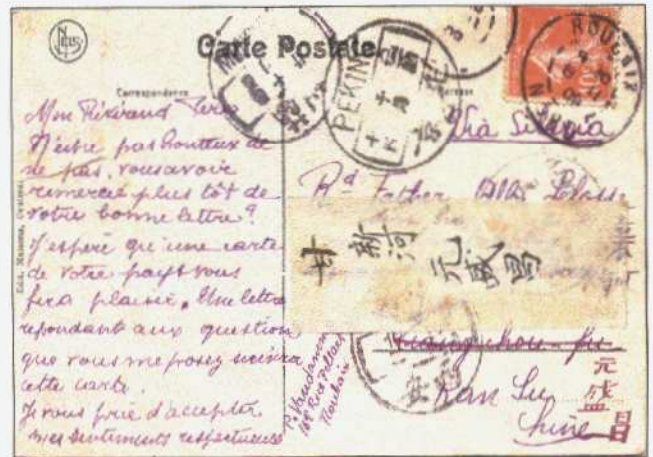 NELS
Carte Postale
Correspondance
Adresse
Mon Révérend Père
N'être pas honteux de
ne pas vous avoir
remercié plus tôt de
votre bonne lettre?
J'espère qu'une carte
de votre pays vous
fera plaisir. Une lettre
repondant aux question
que vous me posez suivra
cette carte.
Je vous prie d'accepter
mes sentiments respectueux
P. Vandamme
Rue
Roubaix
PEKING
ROUBAIX
Via Siberia
Rd Father
甘 新河 元盛昌
Kan Su
Chine
元盛昌